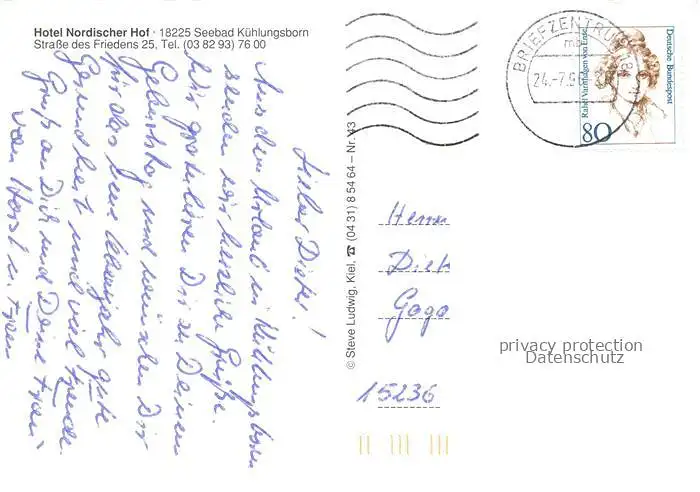 Hotel Nordischer Hof · 18225 Seebad Kühlungsborn
Straße des Friedens 25, Tel. (03 82 93) 76 00
Lieber Dieter!
Aus dem Urlaub in Kühlungsborn
senden wir herzliche Grüße.
Wir gratulieren Dir zu Deinem
Geburtstag und wünschen Dir
für das neue Lebensjahr gute
Gesundheit und viel Freude.
Gruß an Dich und Deine Frau
von Horst u.
© Steve Ludwig, Kiel, ☎ (04 31) 8 54 64 – Nr.
BRIEFZENTRUM
24.-7.9
Deutsche Bundespost
Rahel Varnhagen von Ense
80
Herrn
Diet
Gogo
15236
privacy protection
Datenschutz